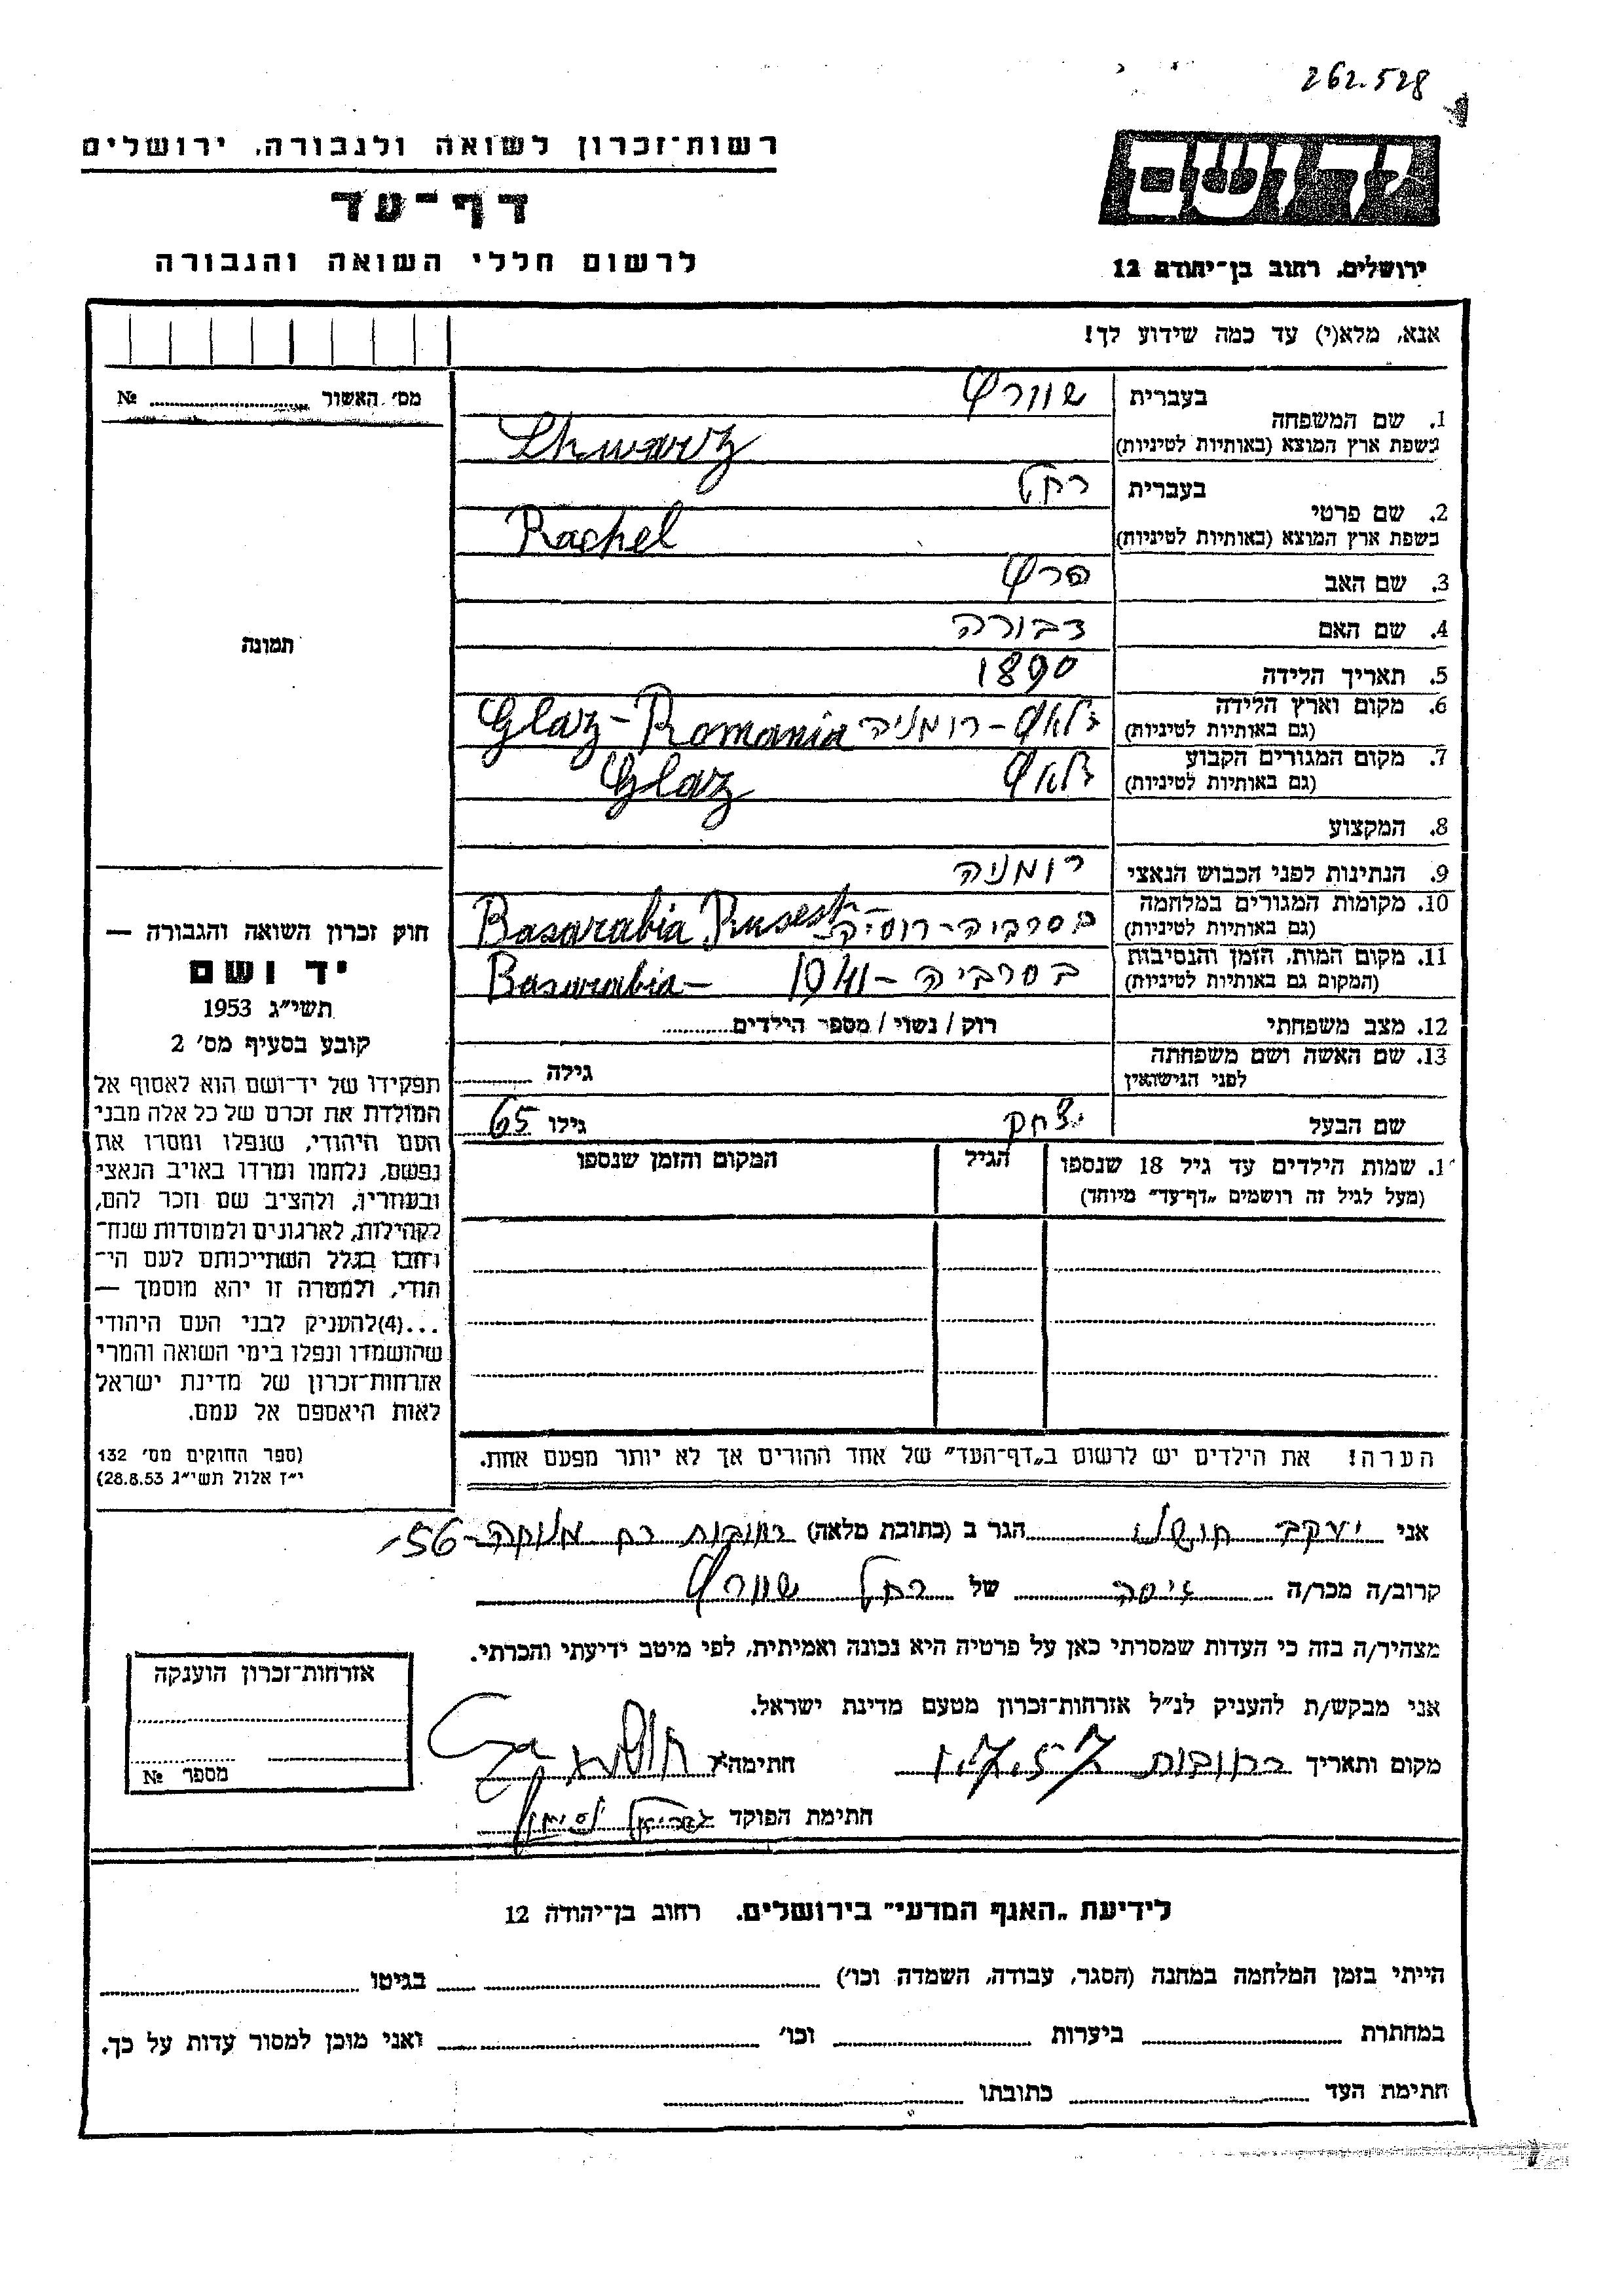 262.528
ידושם
ירושלים, רחוב בן־יהודה 12
רשות־זכרון לשואה ולגבורה, ירושלים
דף־עד
לרשום חללי השואה והגבורה
אנא, מלא(י) עד כמה שידוע לך!
מס׳ האשור № 
1. שם המשפחה
בעברית שוורץ
בשפת ארץ המוצא (באותיות לטיניות) Shwarz
2. שם פרטי
בעברית רחל
בשפת ארץ המוצא (באותיות לטיניות) Rachel
3. שם האב הרץ
4. שם האם דבורה
5. תאריך הלידה 1890
6. מקום וארץ הלידה
(גם באותיות לטיניות) רומניה Glaz - Romania
7. מקום המגורים הקבוע
(גם באותיות לטיניות) Glaz
8. המקצוע
9. הנתינות לפני הכבוש הנאצי רומניה
10. מקומות המגורים במלחמה
(גם באותיות לטיניות) בסרביה - רוסיה Basarabia
11. מקום המות, הזמן והנסיבות
(המקום גם באותיות לטיניות) בסרביה - 1941 Basarabia -
12. מצב משפחתי רוק / נשוי / מספר הילדים
13. שם האשה ושם משפחתה
לפני הנישואין גילה
שם הבעל יצחק גילו 65
1. שמות הילדים עד גיל 18 שנספו הגיל המקום והזמן שנספו
(מעל לגיל זה רושמים „דף־עד” מיוחד)
הערה! את הילדים יש לרשום ב„דף־העד” של אחד ההורים אך לא יותר מפעם אחת.
תמונה
חוק זכרון השואה והגבורה —
יד ושם
תשי״ג 1953
קובע בסעיף מס׳ 2
תפקידו של יד־ושם הוא לאסוף אל
המולדת את זכרם של כל אלה מבני
העם היהודי, שנפלו ומסרו את
נפשם, נלחמו ומרדו באויב הנאצי
ובעוזריו, ולהציב שם וזכר להם,
לקהילות, לארגונים ולמוסדות שנח־
רבו בגלל השתייכותם לעם הי־
הודי, ולמטרה זו יהא מוסמך —
...(4)להעניק לבני העם היהודי
שהושמדו ונפלו בימי השואה והמרי
אזרחות־זכרון של מדינת ישראל
לאות היאספם אל עמם.
(ספר החוקים מס׳ 132
י״ז אלול תשי״ג 28.8.53)
אני יעקב הגר ב (כתובת מלאה) רחובות 56
קרוב/ה מכר/ה של רחל שוורץ
מצהיר/ה בזה כי העדות שמסרתי כאן על פרטיה היא נכונה ואמיתית, לפי מיטב ידיעתי והכרתי.
אני מבקש/ת להעניק לנ״ל אזרחות־זכרון מטעם מדינת ישראל.
מקום ותאריך רחובות 1.7.57 חתימה
חתימת הפוקד
אזרחות־זכרון הוענקה
מספר №
לידיעת „האגף המדעי” בירושלים, רחוב בן־יהודה 12
הייתי בזמן המלחמה במחנה (הסגר, עבודה, השמדה וכו׳) בגיטו
במחתרת ביערות וכו׳ ואני מוכן למסור עדות על כך.
חתימת העד כתובתו